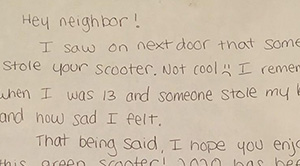 Hey neighbor!
I saw on nextdoor that some
stole your scooter. Not cool I remem
when I was 13 and someone stole my b
and how sad I felt.
That being said, I hope you enjo
this green scooter! 2020 has bee